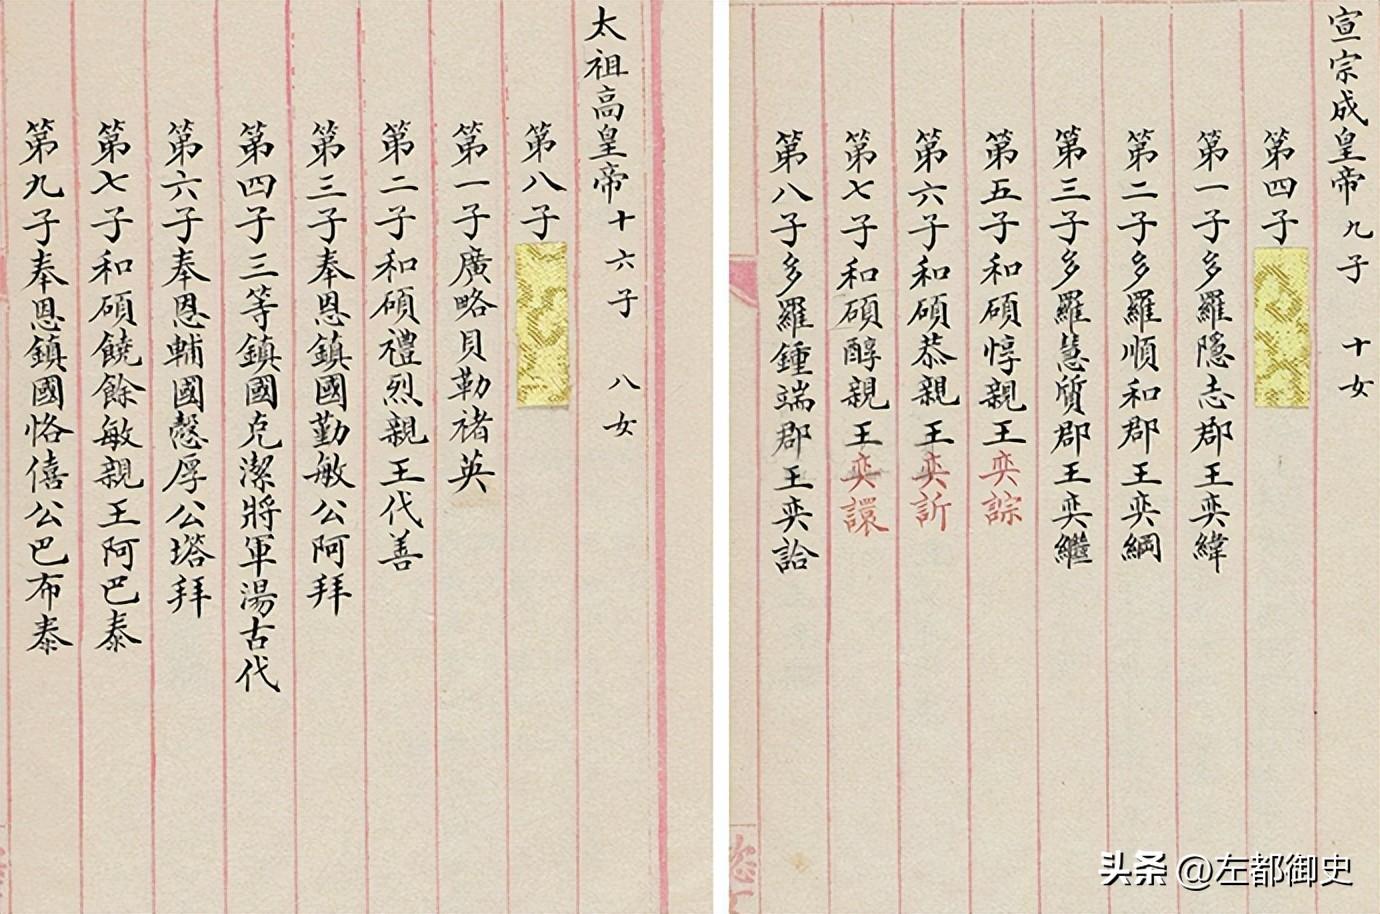 太祖高皇帝十六子 八女
第八子
第一子廣略貝勒褚英
第二子和碩禮烈親王代善
第三子奉恩鎮國勤敏公阿拜
第四子三等鎮國克潔將軍湯古代
第六子奉恩輔國慤厚公塔拜
第七子和碩饒餘敏親王阿巴泰
第九子奉恩鎮國恪僖公巴布泰
宣宗成皇帝九子 十女
第四子
第一子多羅隱志郡王奕緯
第二子多羅順和郡王奕綱
第三子多羅慧質郡王奕繼
第五子和碩惇親王奕誴
第六子和碩恭親王奕訢
第七子和碩醇親王奕譞
第八子多羅鍾端郡王奕詥
头条 @左都御史